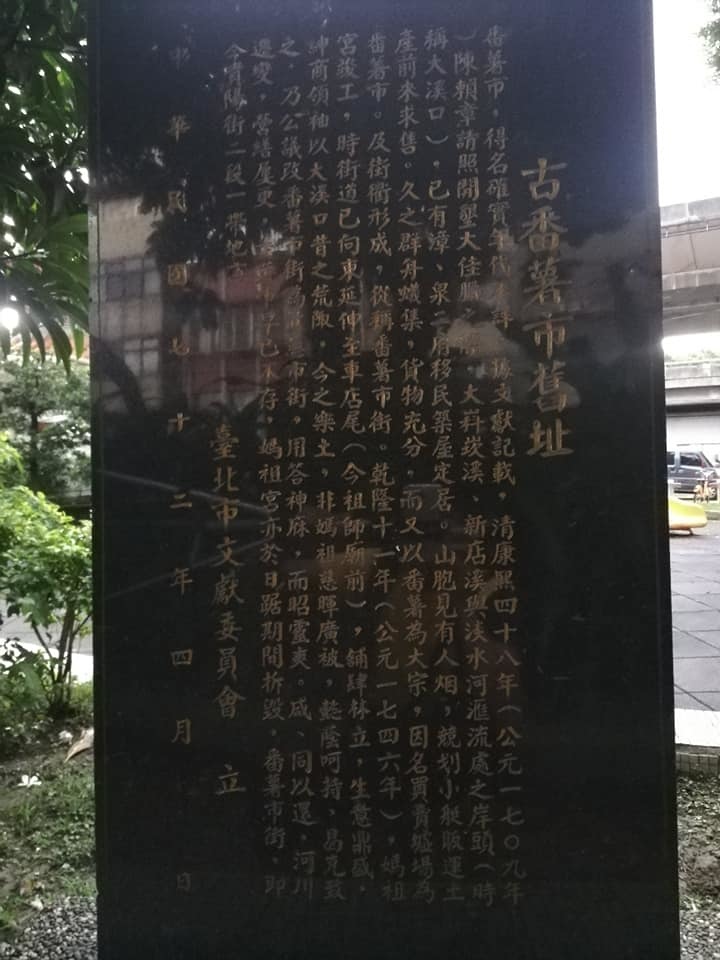 古番薯市舊址
番薯市，得名確實年代不詳，據文獻記載，清康熙四十八年（公元一七〇九年
）陳賴章請照開墾大佳臘之，大嵙崁溪、新店溪與淡水河滙流處之岸頭（時
稱大溪口），已有漳、泉二府移民築屋定居。山胞見有人烟，競划小艇販運土
產前來求售。久之群舟蟻集，貨物充分，而又以番薯為大宗，因名買賣墟場為
番薯市。及街衢形成，從稱番薯市街。乾隆十一年（公元一七四六年），媽祖
宮竣工，時街道已向東延伸至車店尾（今祖師廟前），舖肆林立，生意鼎盛，
紳商領袖以大溪口昔之荒陬，今之樂土，非媽祖慈暉廣被，蔭呵持，曷克致
之，乃公議改番薯市街為市街，用答神庥，而昭靈爽。咸、同以還，河川
遷變，營繕屢更，早已不存，媽祖宮亦於日踞期間拆毀。番薯市街，即
今貴陽街二段一帶地
臺北市文獻委員會 立
中華民國七十二年四月 日